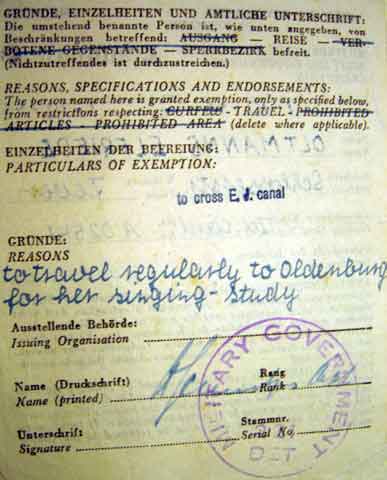 GRÜNDE, EINZELHEITEN UND AMTLICHE UNTERSCHRIFT:
Die umstehend benannte Person ist, wie unten angegeben, von
Beschränkungen betreffend: AUSGANG — REISE — VER-
BOTENE GEGENSTÄNDE — SPERRBEZIRK befreit.
(Nichtzutreffendes ist durchzustreichen.)
REASONS, SPECIFICATIONS AND ENDORSEMENTS:
The person named here is granted exemption, only as specified below,
from restrictions respecting: CURFEW - TRAVEL - PROHIBITED
ARTICLES - PROHIBITED AREA (delete where applicable).
EINZELHEITEN DER BEFREIUNG:
PARTICULARS OF EXEMPTION:
to cross E. J. canal
GRÜNDE:
REASONS
to travel regularly to Oldenburg
for her singing-study
Ausstellende Behörde:
Issuing Organisation
Name (Druckschrift) Rang
Name (printed) Rank
Unterschrift Stammnr.
Signature Serial No.
MILITARY GOVERNMENT
DET